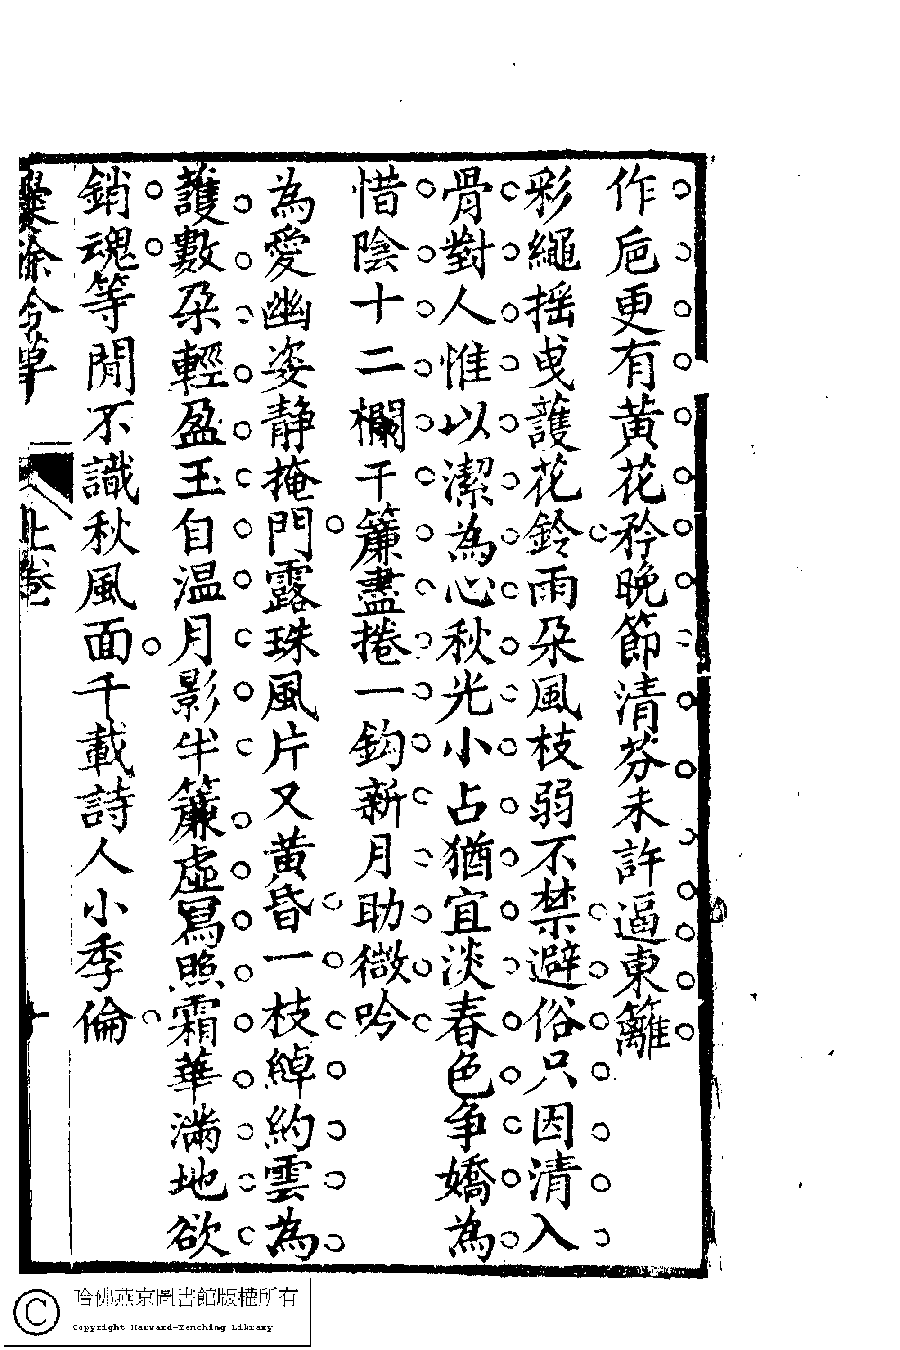 作巵更有黄花矜晚節清芬未許逼東籬
彩繩摇曵護花鈴雨朶風枝弱不禁避俗只因清入
骨對人惟以潔為心秋光小占猶宜淡春色争嬌為
惜陰十二欄干簾盡捲一鈎新月助微吟
為愛幽姿静掩門露珠風片又黄昏一枝綽約雲為
護數朶輕盈玉自温月影半簾虚寫照霜華滿地欲
銷魂等閒不識秋風面千載詩人小季倫
爨餘吟草
上卷
十
哈佛燕京圖書館版權所有
Copyright Harvard-Yenching Library